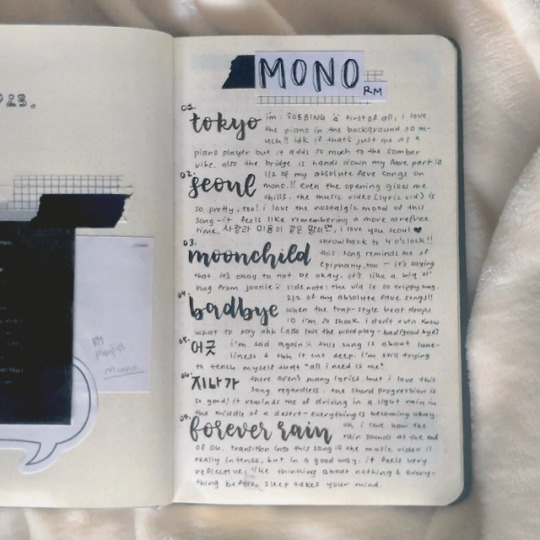 023.
RM
playlist
mono
MONO
RM
01.
tokyo
i'm: SOBBING :( first of all, i love
the piano in the background so m-
uch!! idk if that's just me as a
piano player but it adds so much to the somber
vibe. also the bridge is hands down my fave part :o
02.
seoul
1/2 of my absolute fave songs on
mono!! even the opening gives me
chills. the music video (lyric vid) is
so pretty, too! i love the nostalgic mood of this
song - it feels like remembering a more carefree
time. 사랑과 미움이 같은 말이면, i love you seoul ♥
03.
moonchild
throwback to 4 o'clock!!
this song reminds me of
epiphany, too - it's saying
that it's okay to not be okay. it's like a big ol'
hug from joonie :) side note: the vid is so trippy omg.
04.
badbye
2/2 of my absolute fave songs!!
when the trap-style beat drops
i'm so shook i don't even know
what to say ahh (also love the wordplay - bad/good bye)
05.
어긋
i'm sad again :( this song is about lone-
liness & it cut deep. i'm still trying
to teach myself that "all i need is me"
06.
지나가
there aren't many lyrics but i love this
song regardless. the chord progression is
so good; it reminds me of driving in a light rain in
the middle of a desert - everything is becoming okay.
07.
forever rain
oh, i love how the
rain sounds at the end
of 06. transition into this song :o the music video is
really intense, but in a good way. it feels very
reflective; like thinking about nothing & every-
thing before sleep takes your mind.